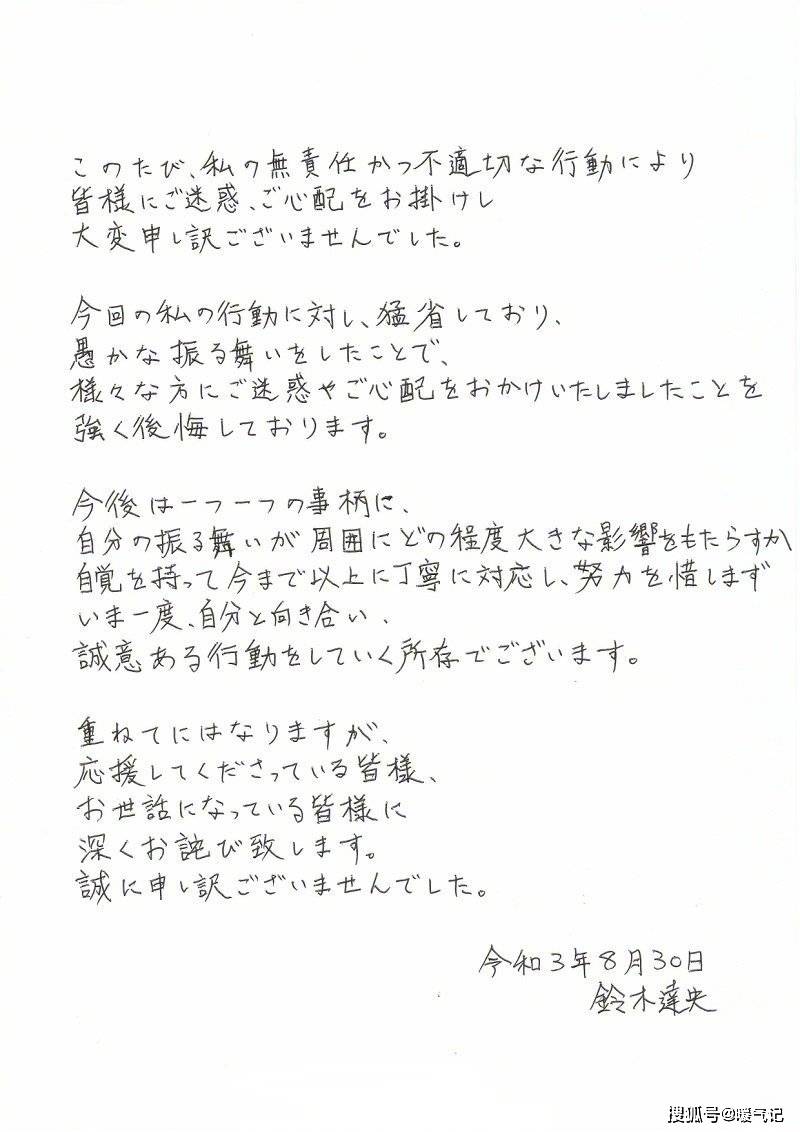 このたび、私の無責任かつ不適切な行動により
皆様にご迷惑、ご心配をお掛けし
大変申し訳ございませんでした。
今回の私の行動に対し、猛省しており、
愚かな振る舞いをしたことで、
様々な方にご迷惑やご心配をおかけいたしましたことを
強く後悔しております。
今後は一つ一つの事柄に、
自分の振る舞いが周囲にどの程度大きな影響をもたらすか
自覚を持って今まで以上に丁寧に対応し、努力を惜しまず
いま一度、自分と向き合い、
誠意ある行動をしていく所存でございます。
重ねてにはなりますが、
応援してくださっている皆様、
お世話になっている皆様に
深くお詫び致します。
誠に申し訳ございませんでした。
令和3年8月30日
鈴木達央
搜狐号@暖气记